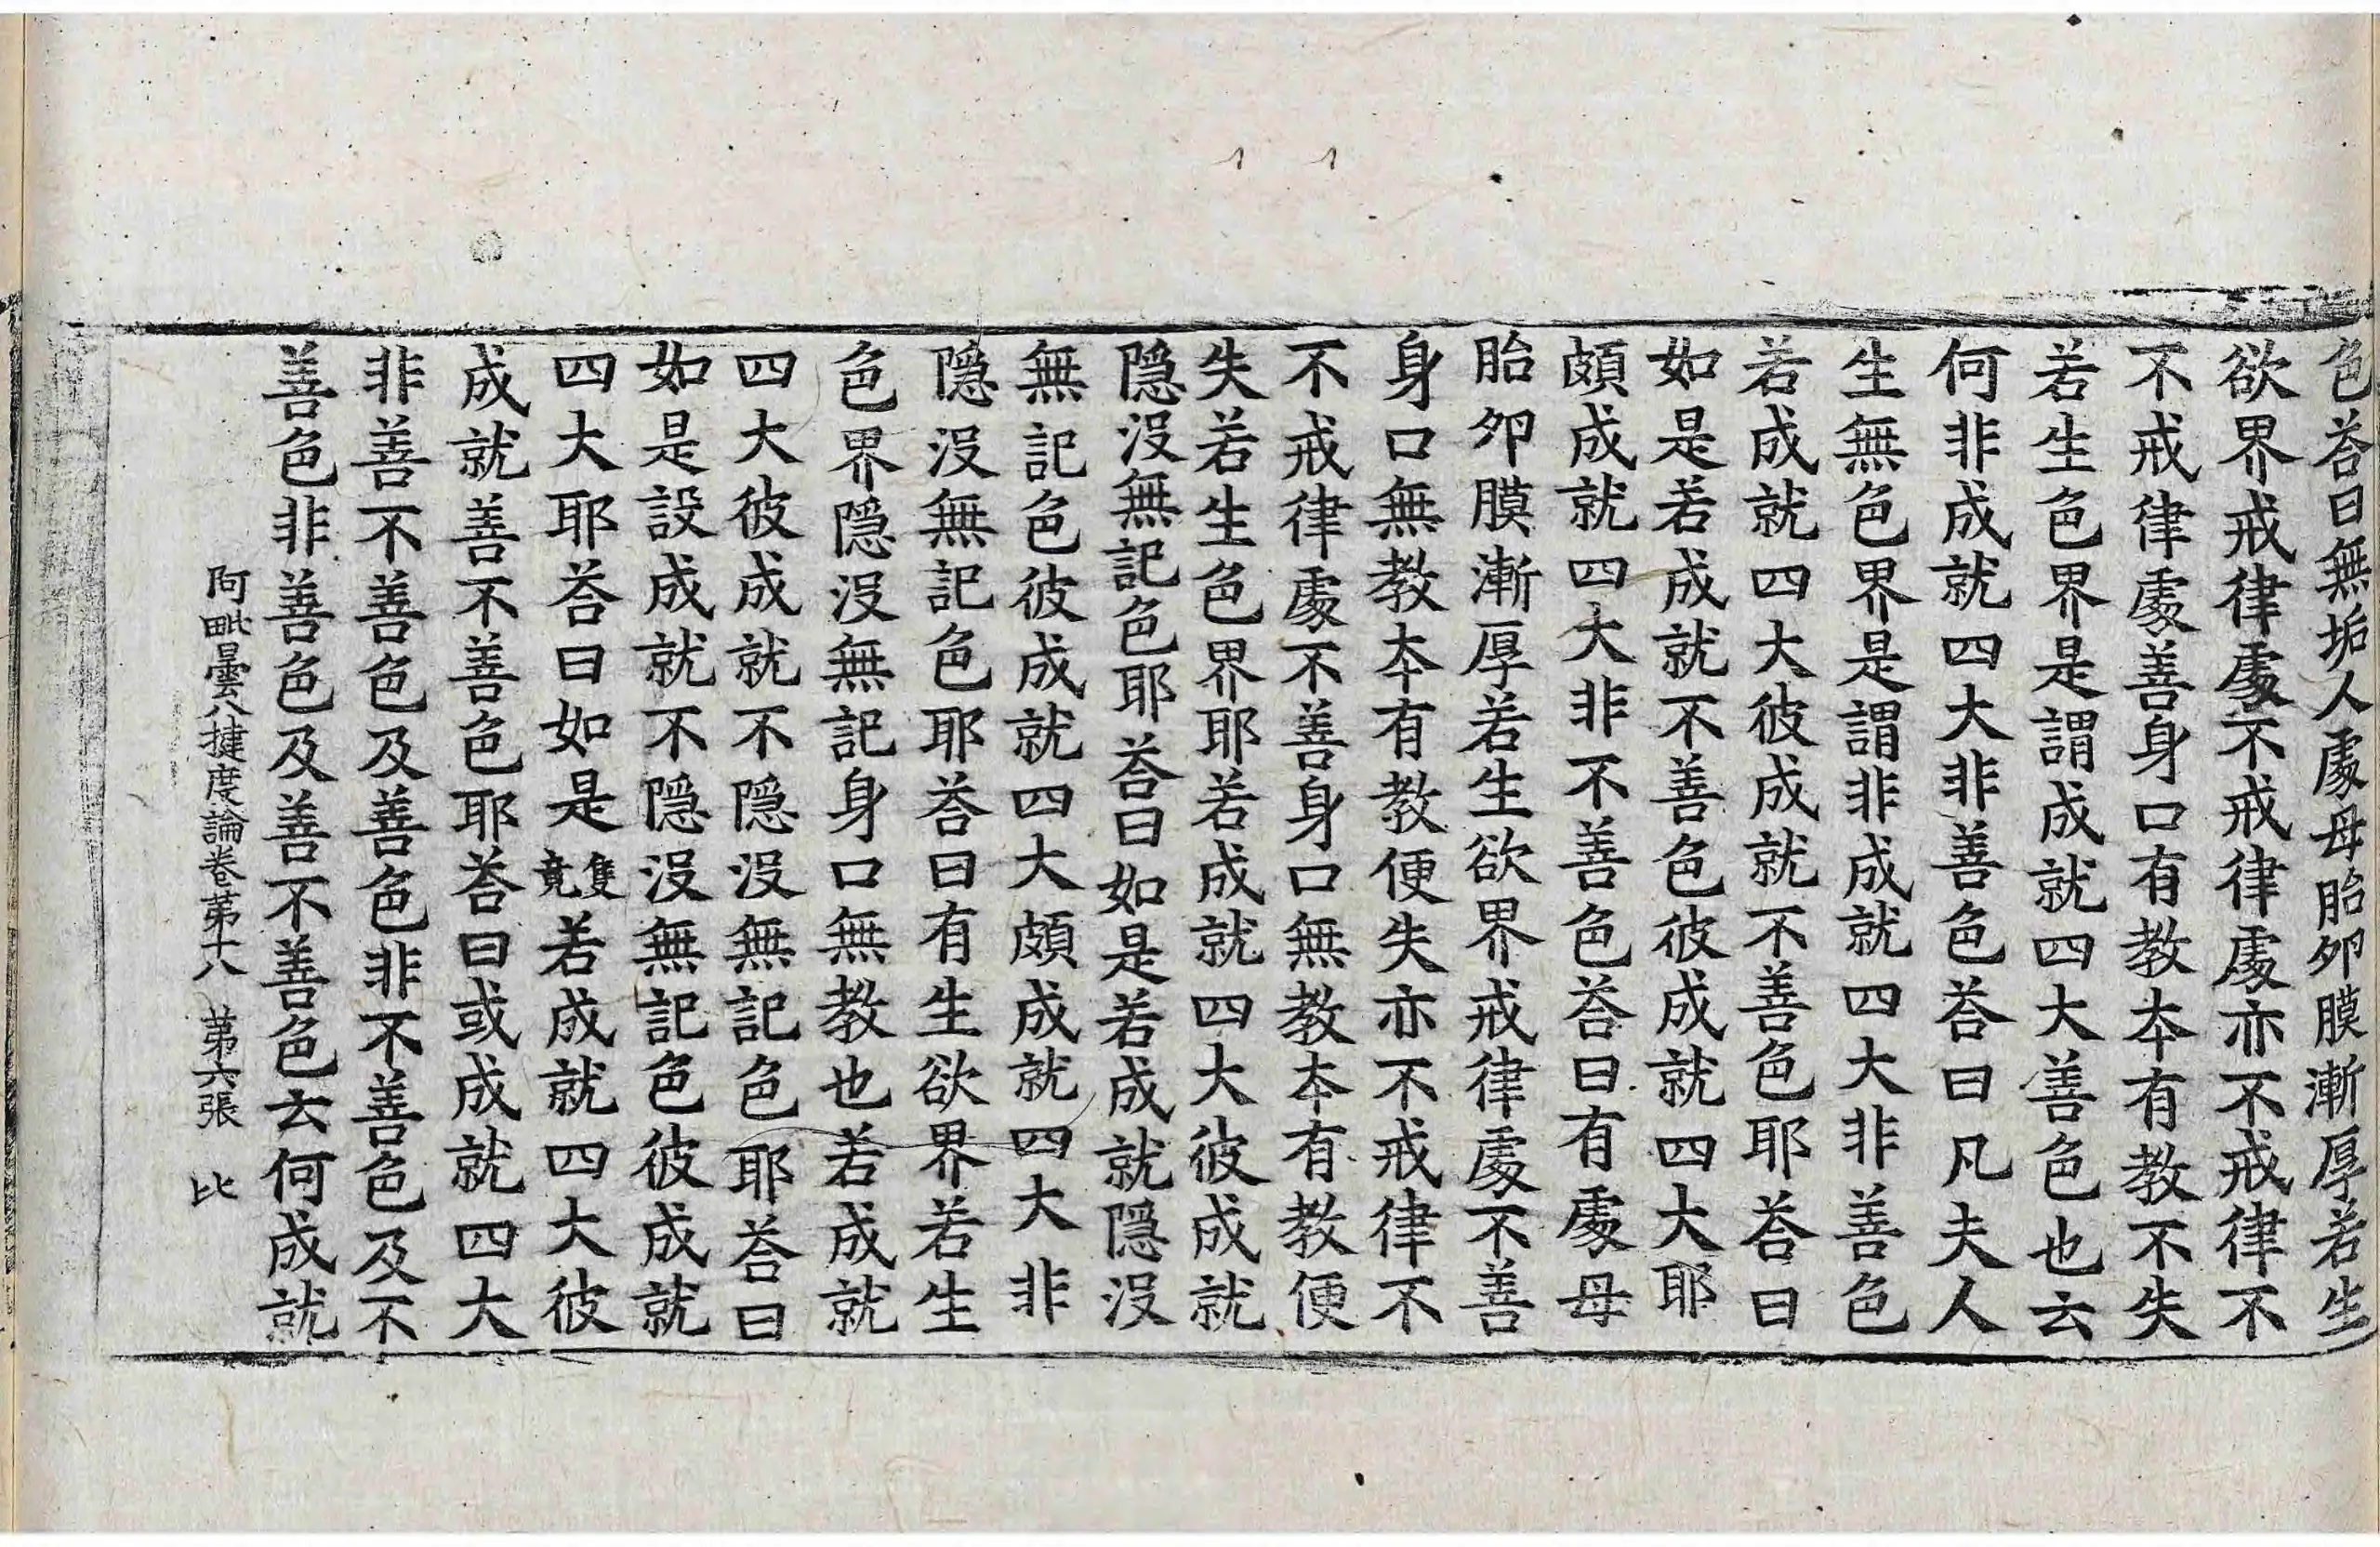 色荅曰無垢人處母胎夘膜漸厚若生
欲界戒律處不戒律處亦不戒律不
不戒律處善身口有教夲有教不失
若生色界是謂成就四大善色也云
何非成就四大非善色荅曰凡夫人
生無色界是謂非成就四大非善色
若成就四大彼成就不善色耶荅曰
如是若成就不善色彼成就四大耶
頗成就四大非不善色荅曰有處母
胎夘膜漸厚若生欲界戒律處不善
身口無教夲有教便失亦不戒律不
不戒律處不善身口無教夲有教便
失若生色界耶若成就四大彼成就
隱沒無記色耶荅曰如是若成就隱沒
無記色彼成就四大頗成就四大非
隱沒無記色耶荅曰有生欲界若生
色界隱沒無記身口無教也若成就
四大彼成就不隱沒無記色耶荅曰
如是設成就不隱沒無記色彼成就
四大耶荅曰如是隻竟若成就四大彼
成就善不善色耶荅曰或成就四大
非善不善色及善色非不善色及不
善色非善色及善不善色云何成就
阿毗曇八揵度論卷第十八 第六張 比